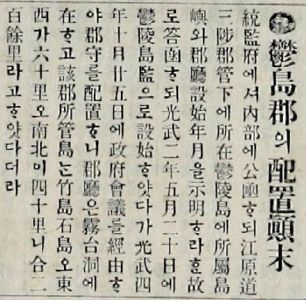 鬱島郡의配置顚末
統監府에셔內部에公函ᄒᆞ되江原道
三陟郡管下에所在鬱陵島에所屬島
嶼와郡廳設始年月을示明ᄒᆞ라ᄂᆞᆫ故
로答函ᄒᆞ되光武二年五月二十日에
鬱陵島監으로設始ᄒᆞ얏다가光武四
年十月廿五日에政府會議를經由ᄒᆞ
야郡守를配置ᄒᆞ니郡廳은霧台洞에
在ᄒᆞ고該郡所管島ᄂᆞᆫ竹島石島오東
西가六十里오南北이四十里니合二
百餘里라고ᄒᆞ얏다더라